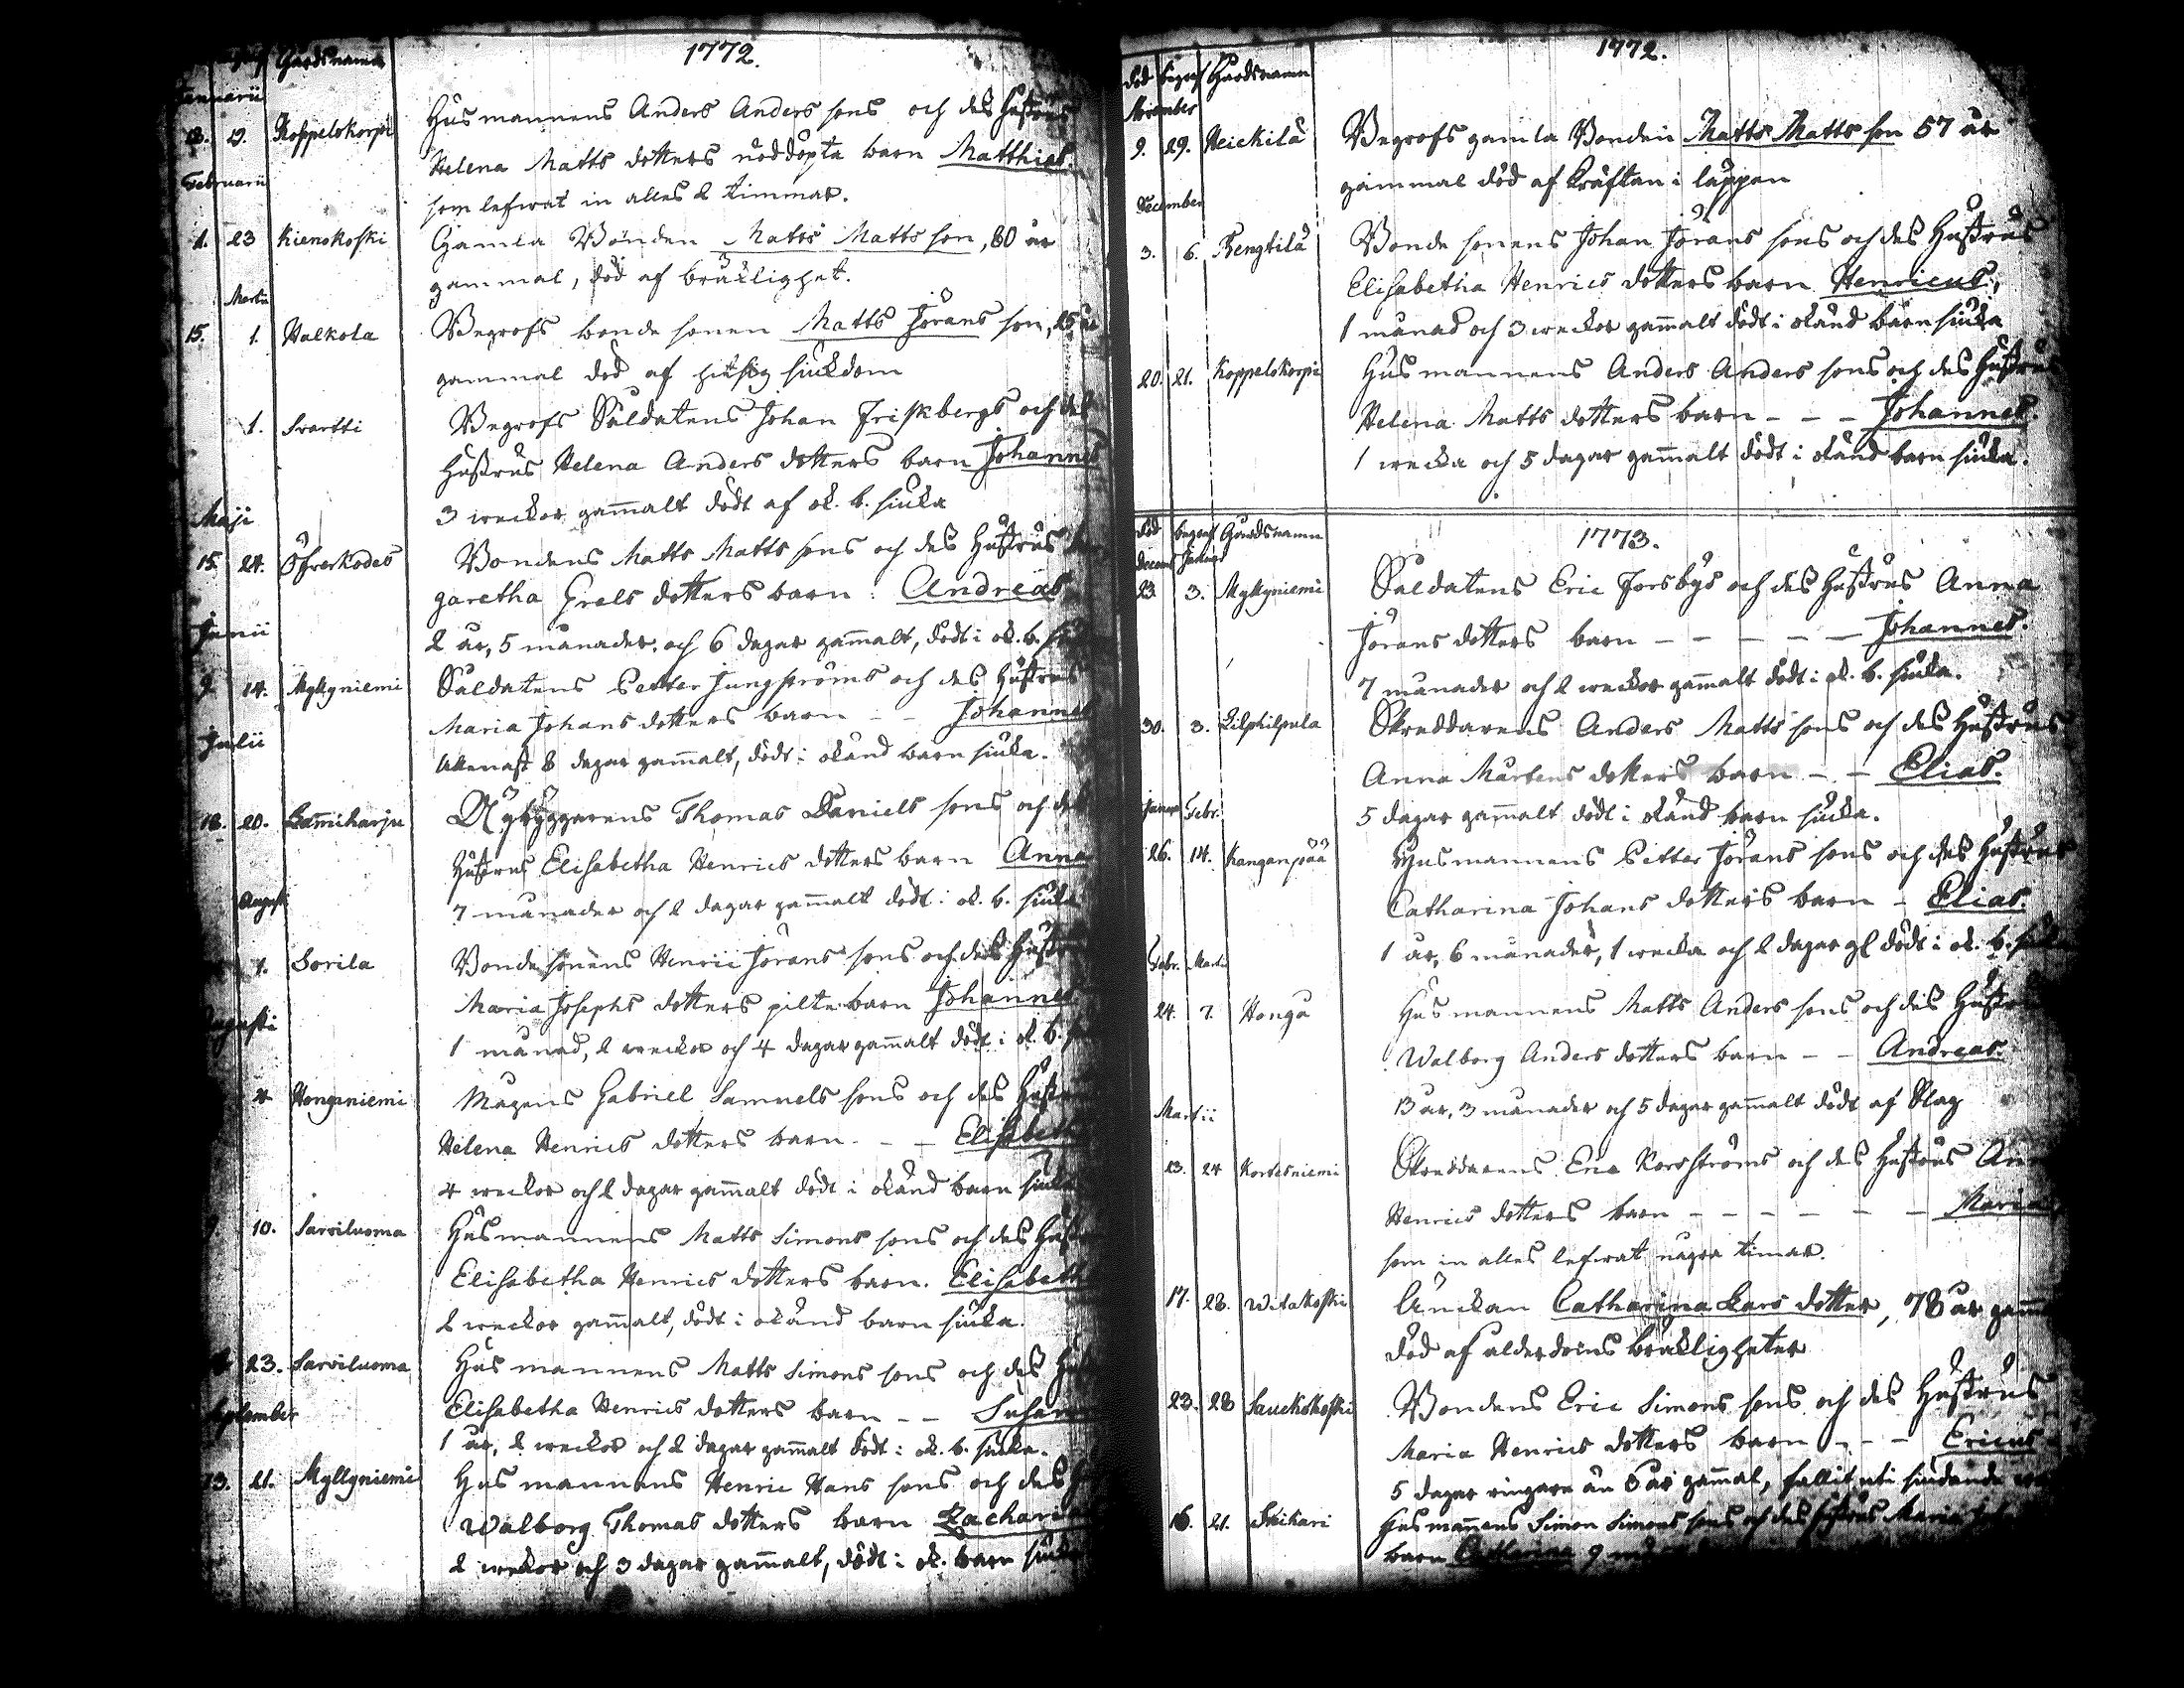 1772.
Gårdsnamn
Januarii
18. 19. Koppelokorpi Husmannens Anders Anders sons och des Hustrus
Helena Matts dotters nöddöpta barn Matthias.
som lefwat in alles 2 timmar.
Februarii
1. 23 Kienokoski Gamla Bonden Matts Matts son, 80 år
gammal, död af bräklighet.
Martii
15. 1. Halkola Begrofs bonde sonen Matts Jörans son, 25 år
gammal död af hitsig siukdom
1. Svartti Begrofs Saldatens Johan Friskbergs och des
Hustrus Helena Anders dotters barn Johannes
3 weckor gam̄alt dödt af ok. b. siuka
Maji
15. 24. Öfverkodes Bondens Matts Matts sons och des Hustrus
garetha Grels dotters barn: Andreas
2 år, 5 månader, och 6 dagar gam̄alt, dödt i ok. b.
Junii
9. 14. Myllyniemi Saldatens Petter Jungströms och des Hustrus
Maria Johans dotters barn - - Johannes
allenast 8 dagar gam̄alt, dödt i okänd barn siuka.
Julii
18. 20. Lam̄iharju Nybyggarens Thomas Daniels sons och des
Hustrus Elisabetha Henrics dotters barn Anna
7 månader och 2 dagar gam̄alt dödt i ok. b. siuka
August
1. Sorila Bonde sonens Henric Jörans sons och des Hustrus
Maria Josephs dotters pilte barn Johannes
1 månad, 2 weckor och 4 dagar gam̄alt dödt i ok. b.
Augusti
2. Honganiemi Mågens Gabriel Samuels sons och des Hustrus
Helena Henrics dotters barn - - Elisabeth
4 weckor och 2 dagar gam̄alt dödt i okänd barn siuka
10. Sarviluoma Husmannens Matts Simons sons och des
Elisabetha Henrics dotters barn. Elisabeth
2 weckor gam̄alt, dödt i okänd barn siuka.
23. Sarviluoma Husmannens Matts Simons sons och des
Elisabetha Henrics dotters barn - -
1 år, 2 weckor och 2 dagar gam̄alt dödt i ok. b. siuka.
September
13. 21. Myllyniemi Husmannens Henric Hans sons och des
Walborg Thomas dotters barn
2 weckor och 3 dagar gam̄alt, dödt i ok. barn siuka
1772.
död begrof Gårdsnamn
November
9. 29. Heickilä Begrofs gamla Bonden Matts Matts son 57 år
gammal död af kräftan i läppen
December
3. 6. Bengtilä Bonde sonens Johan Jörans sons och des Hustrus
Elisabetha Henrics dotters barn Henricus,
1 månad och 3 weckor gam̄alt dödt i okänd barn siuka
20. 21. Koppelokorpi Husmannens Anders Anders sons och des Hustrus
Helena Matts dotters barn - - - Johannes.
1 wecka och 5 dagar gam̄alt dödt i okänd barn siuka.
1773.
död begrof Gårdsnamn
23. 3. Myllyniemi Saldatens Eric Forsbys och des Hustrus Anna
Jörans dotters barn - - - - - Johannes.
7 månader och 2 weckor gam̄alt dödt i ok. b. siuka.
30. 3. Skreddarens Anders Matts sons och des Hustrus
Anna Mårtens dotters barn - - Elias.
5 dagar gam̄alt dödt i okänd barn siuka.
Januar Febr.
26. 14. Kanganpää Husmannens Petter Jörans sons och des Hustrus
Catharina Johans dotters barn - Elias.
1 år, 6 månader, 1 wecka och 2 dagar gl dödt i ok. b.
Febr. Marti
24. 7. Honga Husmannens Matts Anders sons och des
Walborg Anders dotters barn - - Andreas.
13 år, 3 månader och 5 dagar gam̄alt dödt af Slag
Martii
13. 24 Kortesniemi Skreddarens Eric Norrströms och des Hustrus
Henrics dotters barn - - - - - - Maria
som in alles lefwat några timar.
17. 28. Witakoski Änckan Catharina Lars dotter, 78 år
död af ålderdoms bräkligheter
23. 28 Sauckokoski Bondens Eric Simons sons och des Hustrus
Maria Henrics dotters barn - - - Ericus
5 dagar ringare än 5 år gam̄al, fallit uti siudande
16. 21. Husman̄ens Simon Simons sons och des Hustrus Maria
barn Catharina 9